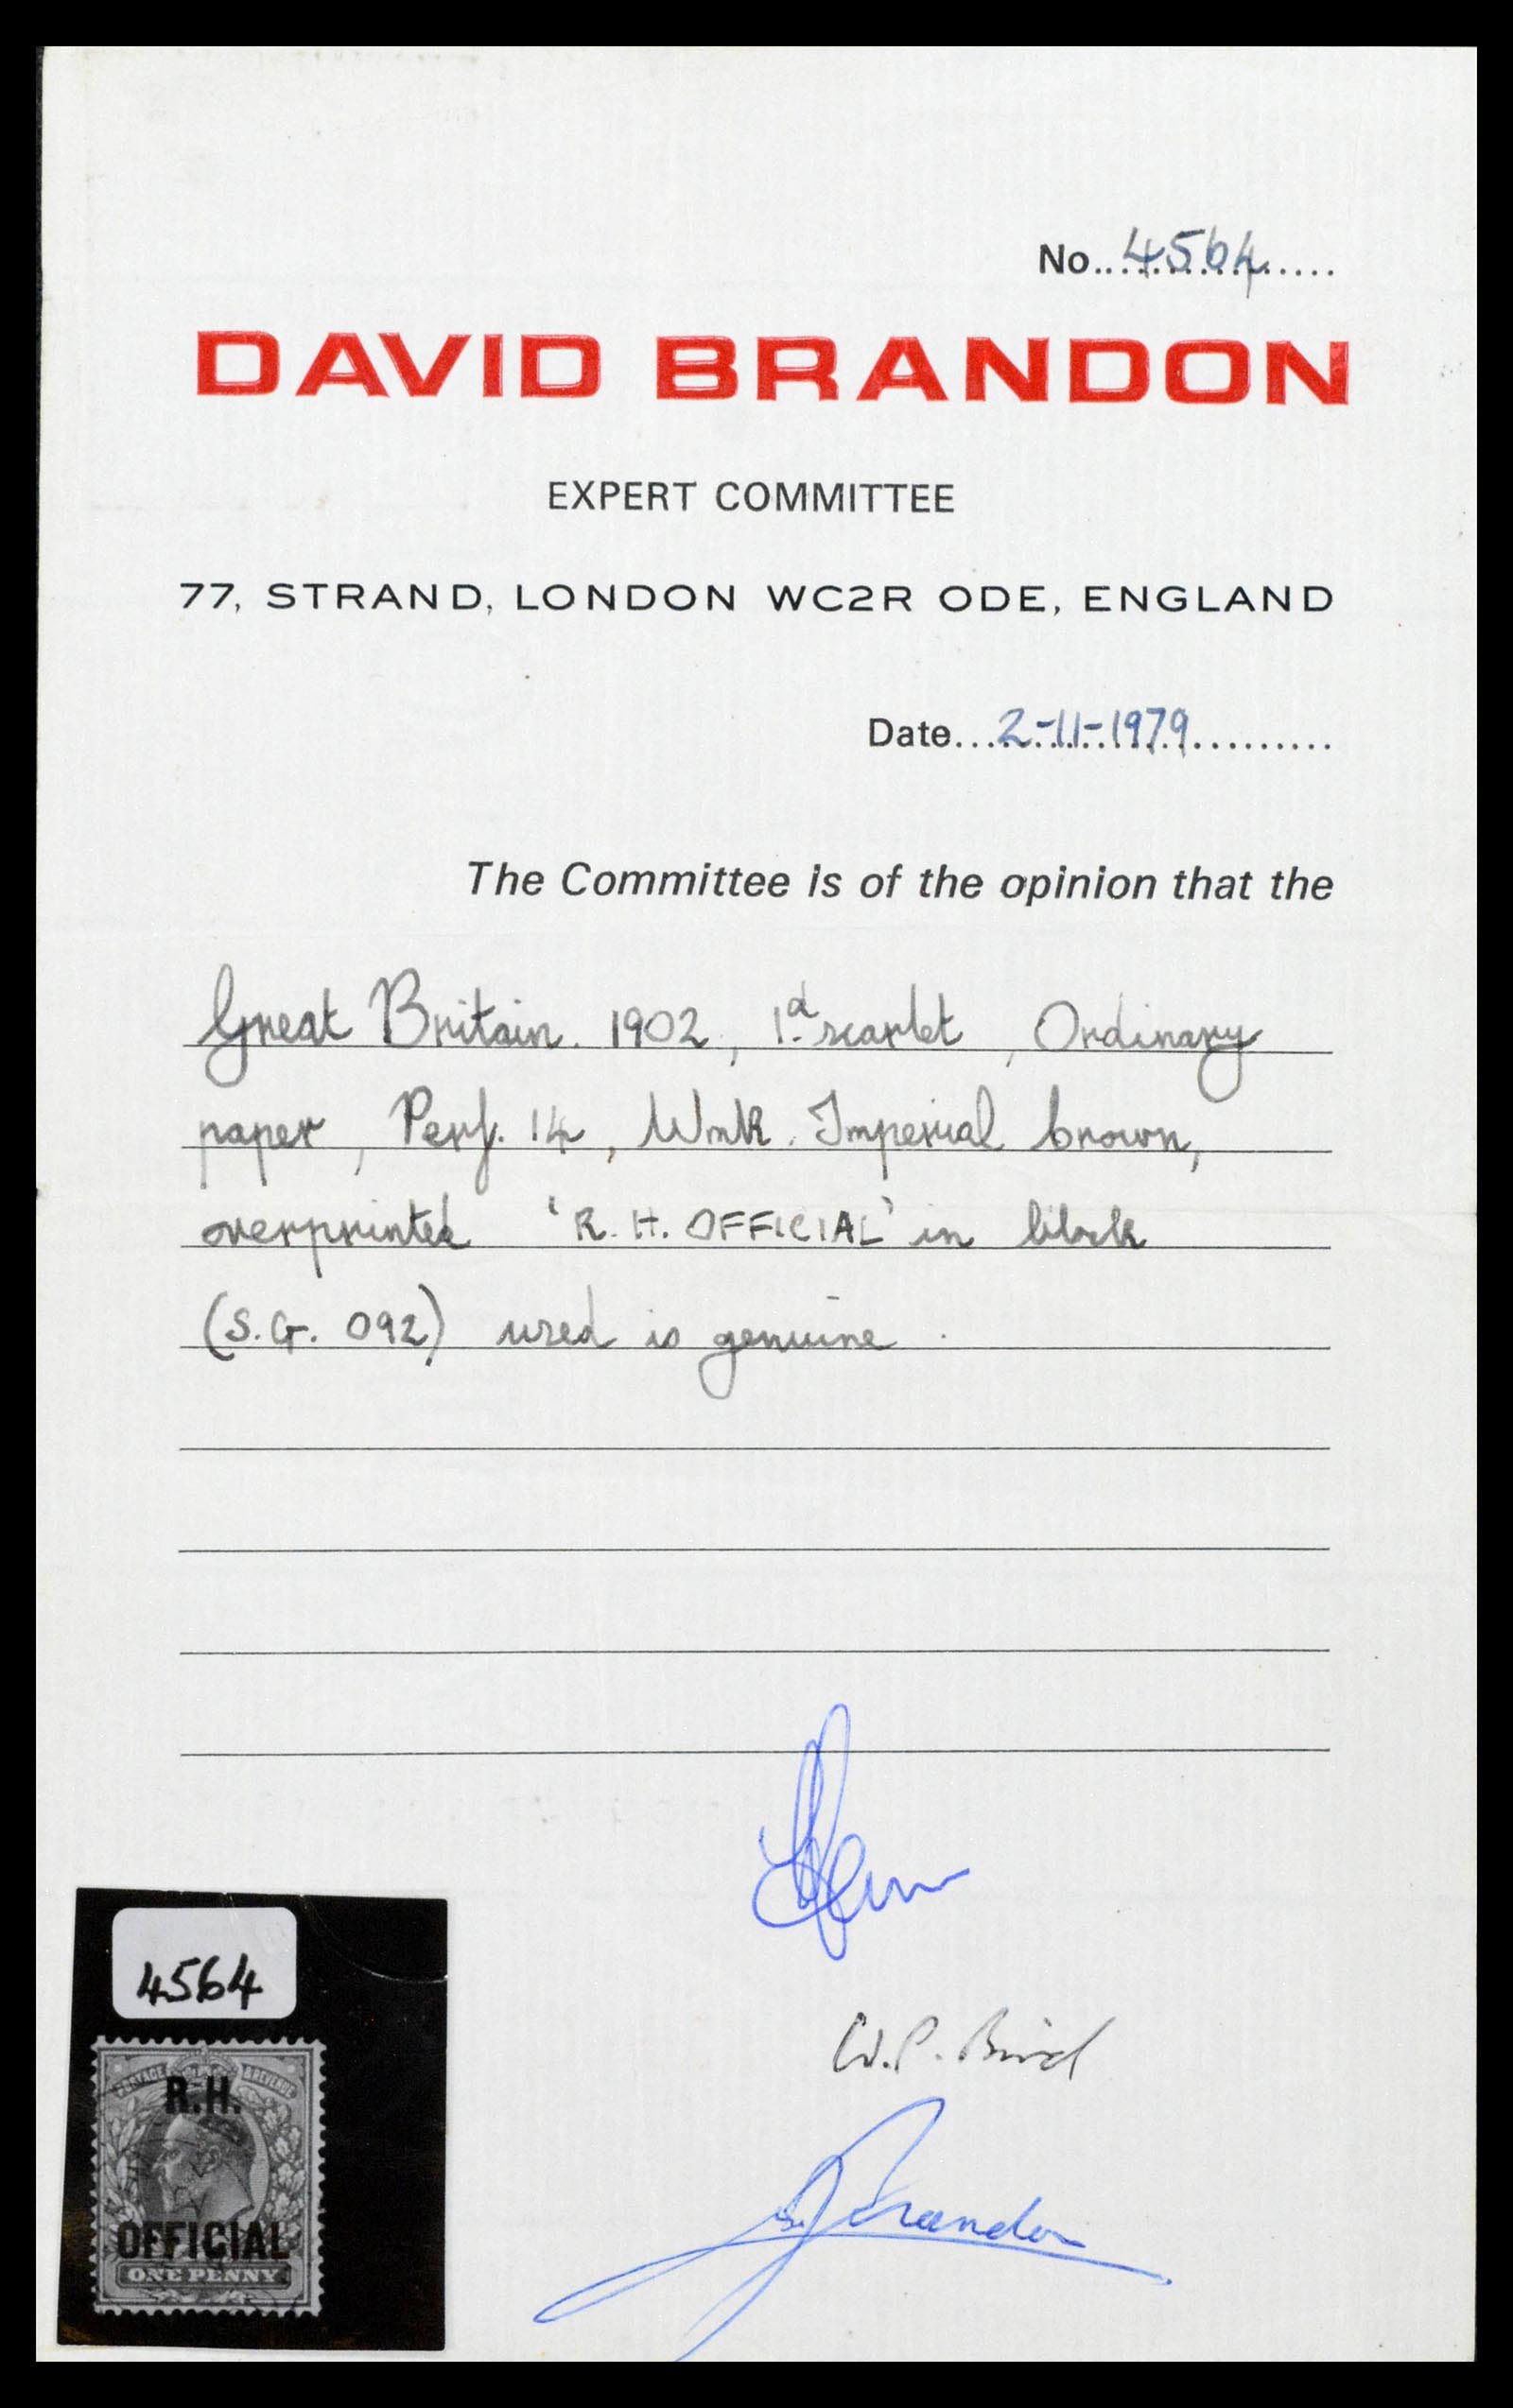 No. 4564
DAVID BRANDON
EXPERT COMMITTEE
77, STRAND, LONDON WC2R ODE, ENGLAND
Date 2-11-1979
The Committee is of the opinion that the
Great Britain. 1902, 1d. scarlet, Ordinary
paper, Perf. 14, Wmk. Imperial Crown,
overprinted 'R.H. OFFICIAL' in black
(S.G. 092) used is genuine.
W.P. Bird
Brandon
4564
POSTAGE & REVENUE
R.H.
OFFICIAL
ONE PENNY